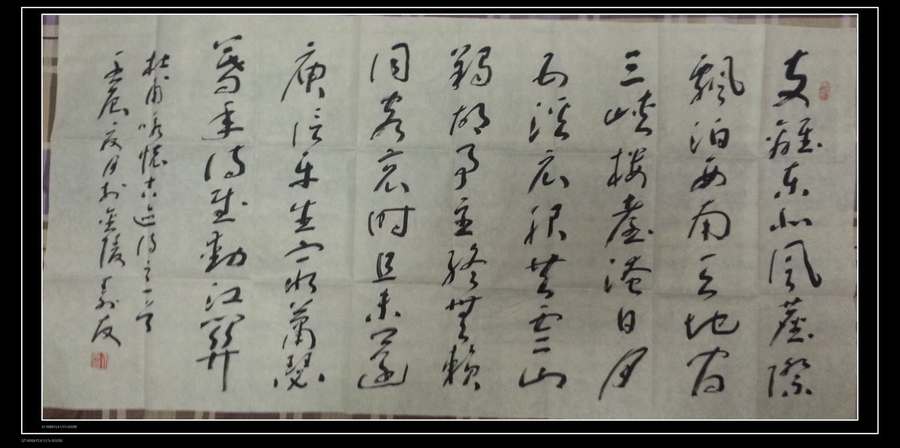 支離東北風塵際
飄泊西南天地間
三峽樓臺淹日月
五溪衣服共雲山
羯胡事主終無賴
詞客哀時且未還
庾信平生最蕭瑟
暮年詩賦動江關
杜甫咏懷古迹詩之一首
壬辰夏月於金陵友